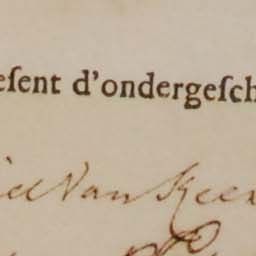 eſent d'ondergeſch
iel Van Keer